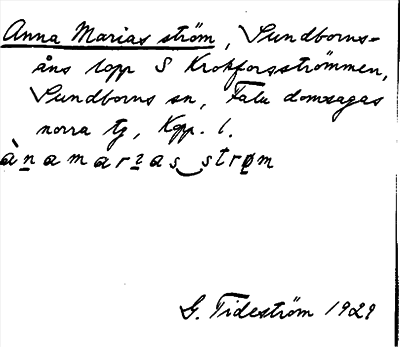 Anna Marias ström, Sundborns-
åns lopp S Krokforsströmmen,
Sundborns sn, Falu domsagas
norra tg, Kpp. l.
ànamarɩas‿strøm
G. Tideström 1929